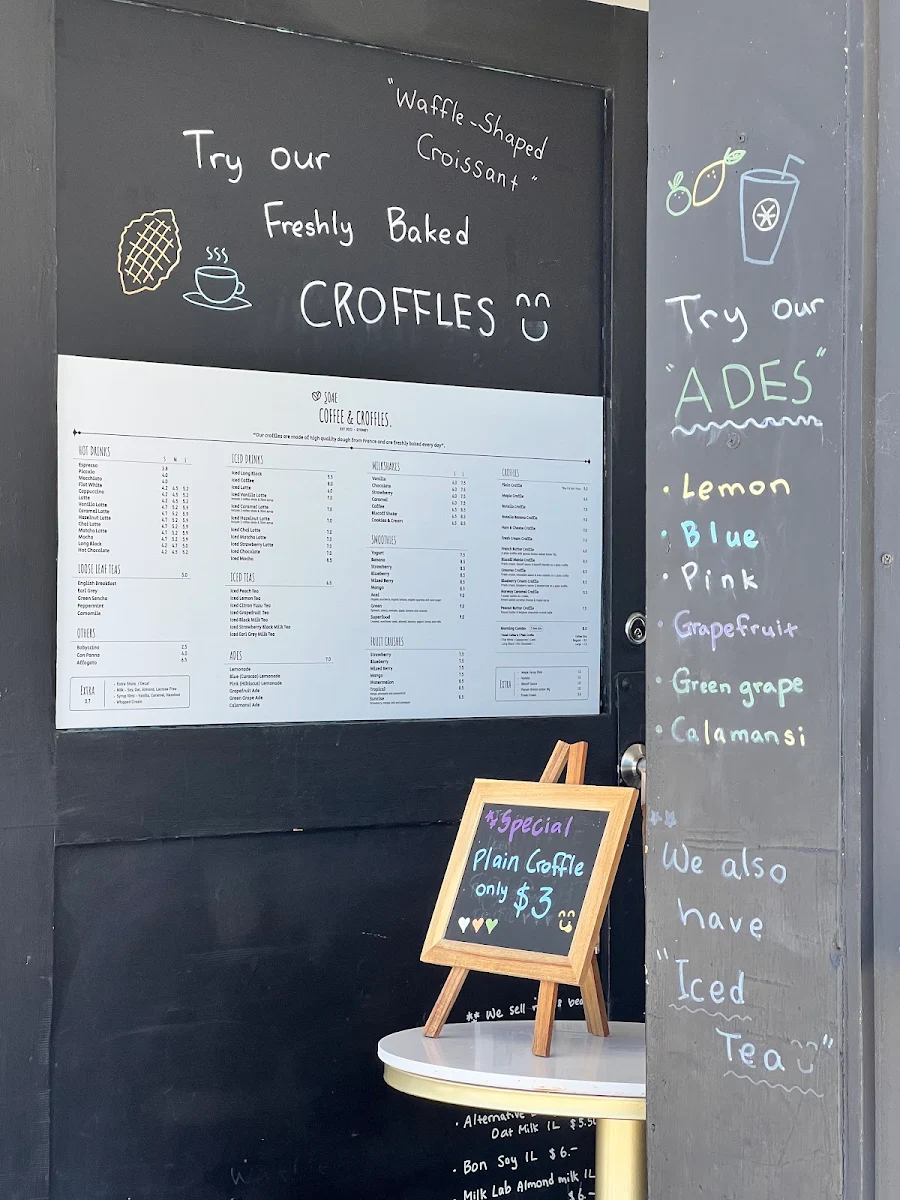 "Waffle-Shaped
Croissant"
Try our
Freshly Baked
CROFFLES
SOAE
COFFEE & CROFFLES.
"Our croffles are made of high quality dough from France and are freshly baked every day".
HOT DRINKS
S M L
Espresso 3.8
Piccolo 4.0
Macchiato 4.0
Flat White 4.2 4.5 5.2
Cappuccino 4.2 4.5 5.2
Latte 4.2 4.5 5.2
Vanilla Latte 4.7 5.2 5.9
Caramel Latte 4.7 5.2 5.9
Hazelnut Latte 4.7 5.2 5.9
Chai Latte 4.7 5.2 5.9
Matcha Latte 4.7 5.2 5.9
Mocha 4.7 5.2 5.9
Long Black 4.2 4.7 5.2
Hot Chocolate 4.2 4.5 5.2
LOOSE LEAF TEAS 5.0
English Breakfast
Earl Grey
Green Sencha
Peppermint
Camomile
OTHERS
Babyccino 2.5
Con Panna 4.0
Affogato 6.5
EXTRA
0.7
- Extra Shot / Decaf
- Milk - Soy, Oat, Almond, Lactose Free
- Syrup 10ml - Vanilla, Caramel, Hazelnut
- Whipped Cream
ICED DRINKS
Iced Long Black 5.5
Iced Coffee 8.0
Iced Latte 6.0
Iced Vanilla Latte 7.0
Iced Caramel Latte 7.0
Iced Hazelnut Latte 7.0
Iced Chai Latte 7.0
Iced Matcha Latte 7.0
Iced Strawberry Latte 7.0
Iced Chocolate 7.0
Iced Mocha 8.5
ICED TEAS 6.5
Iced Peach Tea
Iced Lemon Tea
Iced Citron Yuzu Tea
Iced Grapefruit Tea
Iced Black Milk Tea
Iced Strawberry Black Milk Tea
Iced Earl Grey Milk Tea
ADES 7.0
Lemonade
Blue (Curacao) Lemonade
Pink (Hibiscus) Lemonade
Grapefruit Ade
Green Grape Ade
Calamansi Ade
MILKSHAKES
Vanilla
Chocolate
Strawberry
Caramel
Coffee
Biscoff Shake
Cookies & Cream
SMOOTHIES
Yogurt
Banana
Strawberry
Blueberry
Mixed Berry
Mango
Acai
Green
Superfood
FRUIT CRUSHES
Strawberry
Blueberry
Mixed Berry
Mango
Watermelon
Tropical
Sunrise
CROFFLES
Plain Croffle
Maple Croffle
Nutella Croffle
Nutella Banana Croffle
Ham & Cheese Croffle
Fresh Cream Croffle
Peanut Butter Croffle
Morning Combo
EXTRA
Try our
"ADES"
• Lemon
• Blue
• Pink
• Grapefruit
• Green grape
• Calamansi
We also
have
"Iced
Tea"
*Special
Plain Croffle
only $3
** We sell
• Alternative
Oat Milk 1L $5.50
• Bon Soy 1L $6.-
• Milk Lab Almond milk 1L
$6.-